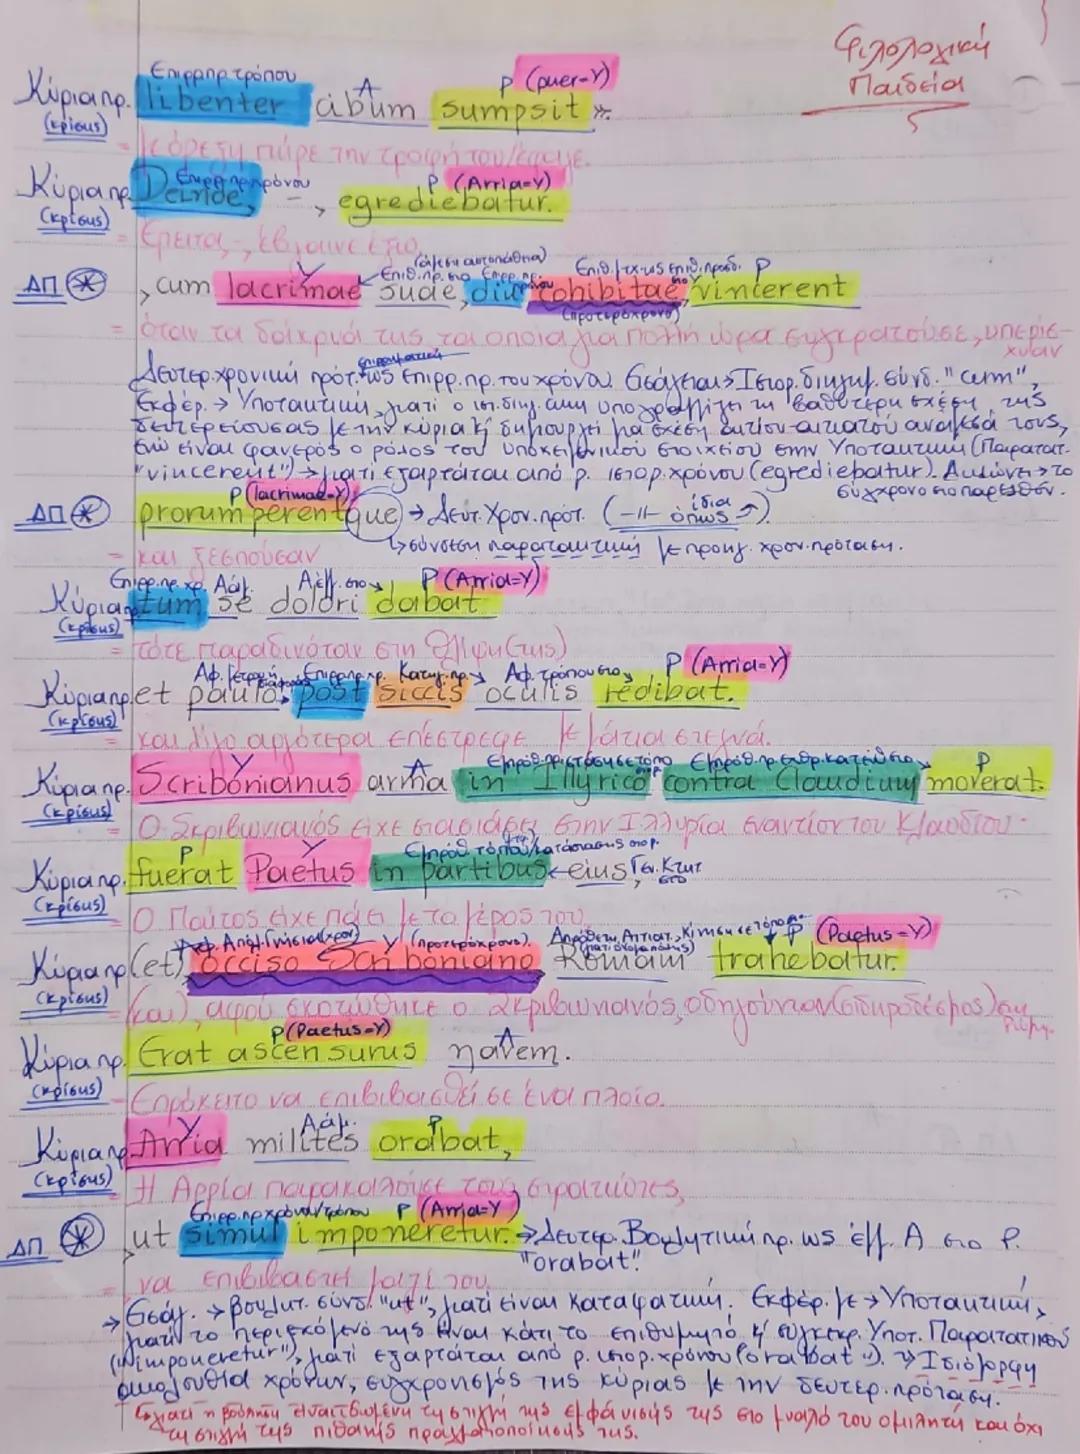 Φιλολογική
Παιδεία
Επιρρ.πρ. τρόπου Α Ρ (puer=Υ)
Κύρια πρ. libenter cibum sumpsit».
(κρίσης)
= με όρεξη πήρε την τροφή του/έφαγε.
Επιρρ.πρ.χρόνου Ρ (Arria=Υ)
Κύρια πρ. Deinde, -, egrediebatur.
(κρίσης)
= Έπειτα, -, έβγαινε έξω,
(άμεση αυτοπάθεια)
Υ Επιθ.πρ. στο Επιρρ.πρ. χρόνου Επιθ. μτχ. ως επιθ. προσδ. στο Ρ
ΔΠ * , cum lacrimae suae, diu cohibitae, vincerent
(προτερόχρονο)
= όταν τα δάκρυά της, τα οποία για πολλή ώρα συγκρατούσε, υπερίσχυαν
επιρρηματική
Δευτερ. χρονική πρότ. ως επιρρ. πρ. του χρόνου. Εισάγεται → Ιστορ. διηγημ. σύνδ. "cum",
Εκφέρ. → Υποτακτική, γιατί ο ιστ. διηγ. cum υπογραμμίζει τη βαθύτερη σχέση της
δευτερεύουσας με την κύρια κ' δημιουργεί μια σχέση αιτίου-αιτιατού ανάμεσά τους,
ενώ είναι φανερός ο ρόλος του υποκειμενικού στοιχείου στην Υποτακτική (Παρατατ.
"vincerent") → γιατί εξαρτάται από ρ. ιστορ. χρόνου (egrediebatur). Δηλώνει → το
σύγχρονο στο παρελθόν.
Ρ (lacrimae=Υ) ίδια
ΔΠ * prorumperentque → Δευτ. Χρον. πρότ. (-//- όπως ↗).
↳ σύνδεση παρατακτική με προηγ. χρον. πρόταση.
= και ξεσπούσαν
Επιρρ.πρ. χρ. Α άμ. Α έμμ. στο Ρ (Arria=Υ)
Κύρια πρ. tum se dolori dabat
(κρίσης)
= τότε παραδινόταν στη θλίψη (της)
Αφ. μέτρου ή διαφοράς Επιρρ.πρ.χρ. Κατηγ. πρ. Αφ. τρόπου στο Ρ (Arria=Υ)
Κύρια πρ. et paulo post siccis oculis redibat.
(κρίσης)
= και λίγο αργότερα επέστρεφε με μάτια στεγνά.
Υ Α Εμπρόθ.πρ. στάσης σε τόπο στο ρ. Εμπρόθ.πρ. εχθρ. κατεύθ. στο Ρ
Κύρια πρ. Scribonianus arma in Illyrico contra Claudium moverat.
(κρίσης)
= Ο Σκριβωνιανός είχε στασιάσει στην Ιλλυρία εναντίον του Κλαυδίου.
Ρ Υ Εμπρόθ. τόπου/κατάστασης στο ρ.
Κύρια πρ. fuerat Paetus in partibus eius, Γεν. Κτητ. στο
(κρίσης)
= Ο Παίτος είχε πάει με το μέρος του
Αφ. Απόλ. Γνήσια (χρον) Υ (προτερόχρονο). Απρόθετη Αιτιατ. Κίνηση σε τόπο (γιατί όνομα πόλης) Ρ (Paetus=Υ)
Κύρια πρ. (et), occiso Scriboniano Romam trahebatur.
(κρίσης)
= (και), αφού σκοτώθηκε ο Σκριβωνιανός, οδηγούνταν (σιδηροδέσμιος) στη Ρώμη.
Ρ (Paetus=Υ) Α
Κύρια πρ. Erat ascensurus navem.
(κρίσης)
= Επρόκειτο να επιβιβασθεί σε ένα πλοίο.
Υ Α άμ. Ρ
Κύρια πρ. Arria milites orabat,
(κρίσης)
= Η Αρρία παρακαλούσε τους στρατιώτες,
Επιρρ.πρ χρόνου/τρόπου Ρ (Arria=Υ)
ΔΠ * , ut simul imponeretur. → Δευτερ. Βουλητική πρ. ως έμμ. Α στο ρ.
"orabat".
= να επιβιβαστεί μαζί του.
→ Εισάγ. → βουλητ. σύνδ. "ut", γιατί είναι καταφατική. Εκφέρ. με → Υποτακτική,
γιατί το περιεχόμενό της είναι κάτι το επιθυμητό κ' συγκεκρ. Υποτ. Παρατατικού
("imponeretur"), γιατί εξαρτάται από ρ. ιστορ. χρόνου ("orabat"). → Ιδιόμορφη
ακολουθία χρόνων, συγχρονισμός της κύριας με την δευτερ. πρόταση.
↳ γιατί η βούληση είναι ιδωμένη τη στιγμή της εμφάνισής της στο μυαλό του ομιλητή και όχι
τη στιγμή της πιθανής πραγματοποίησής της.